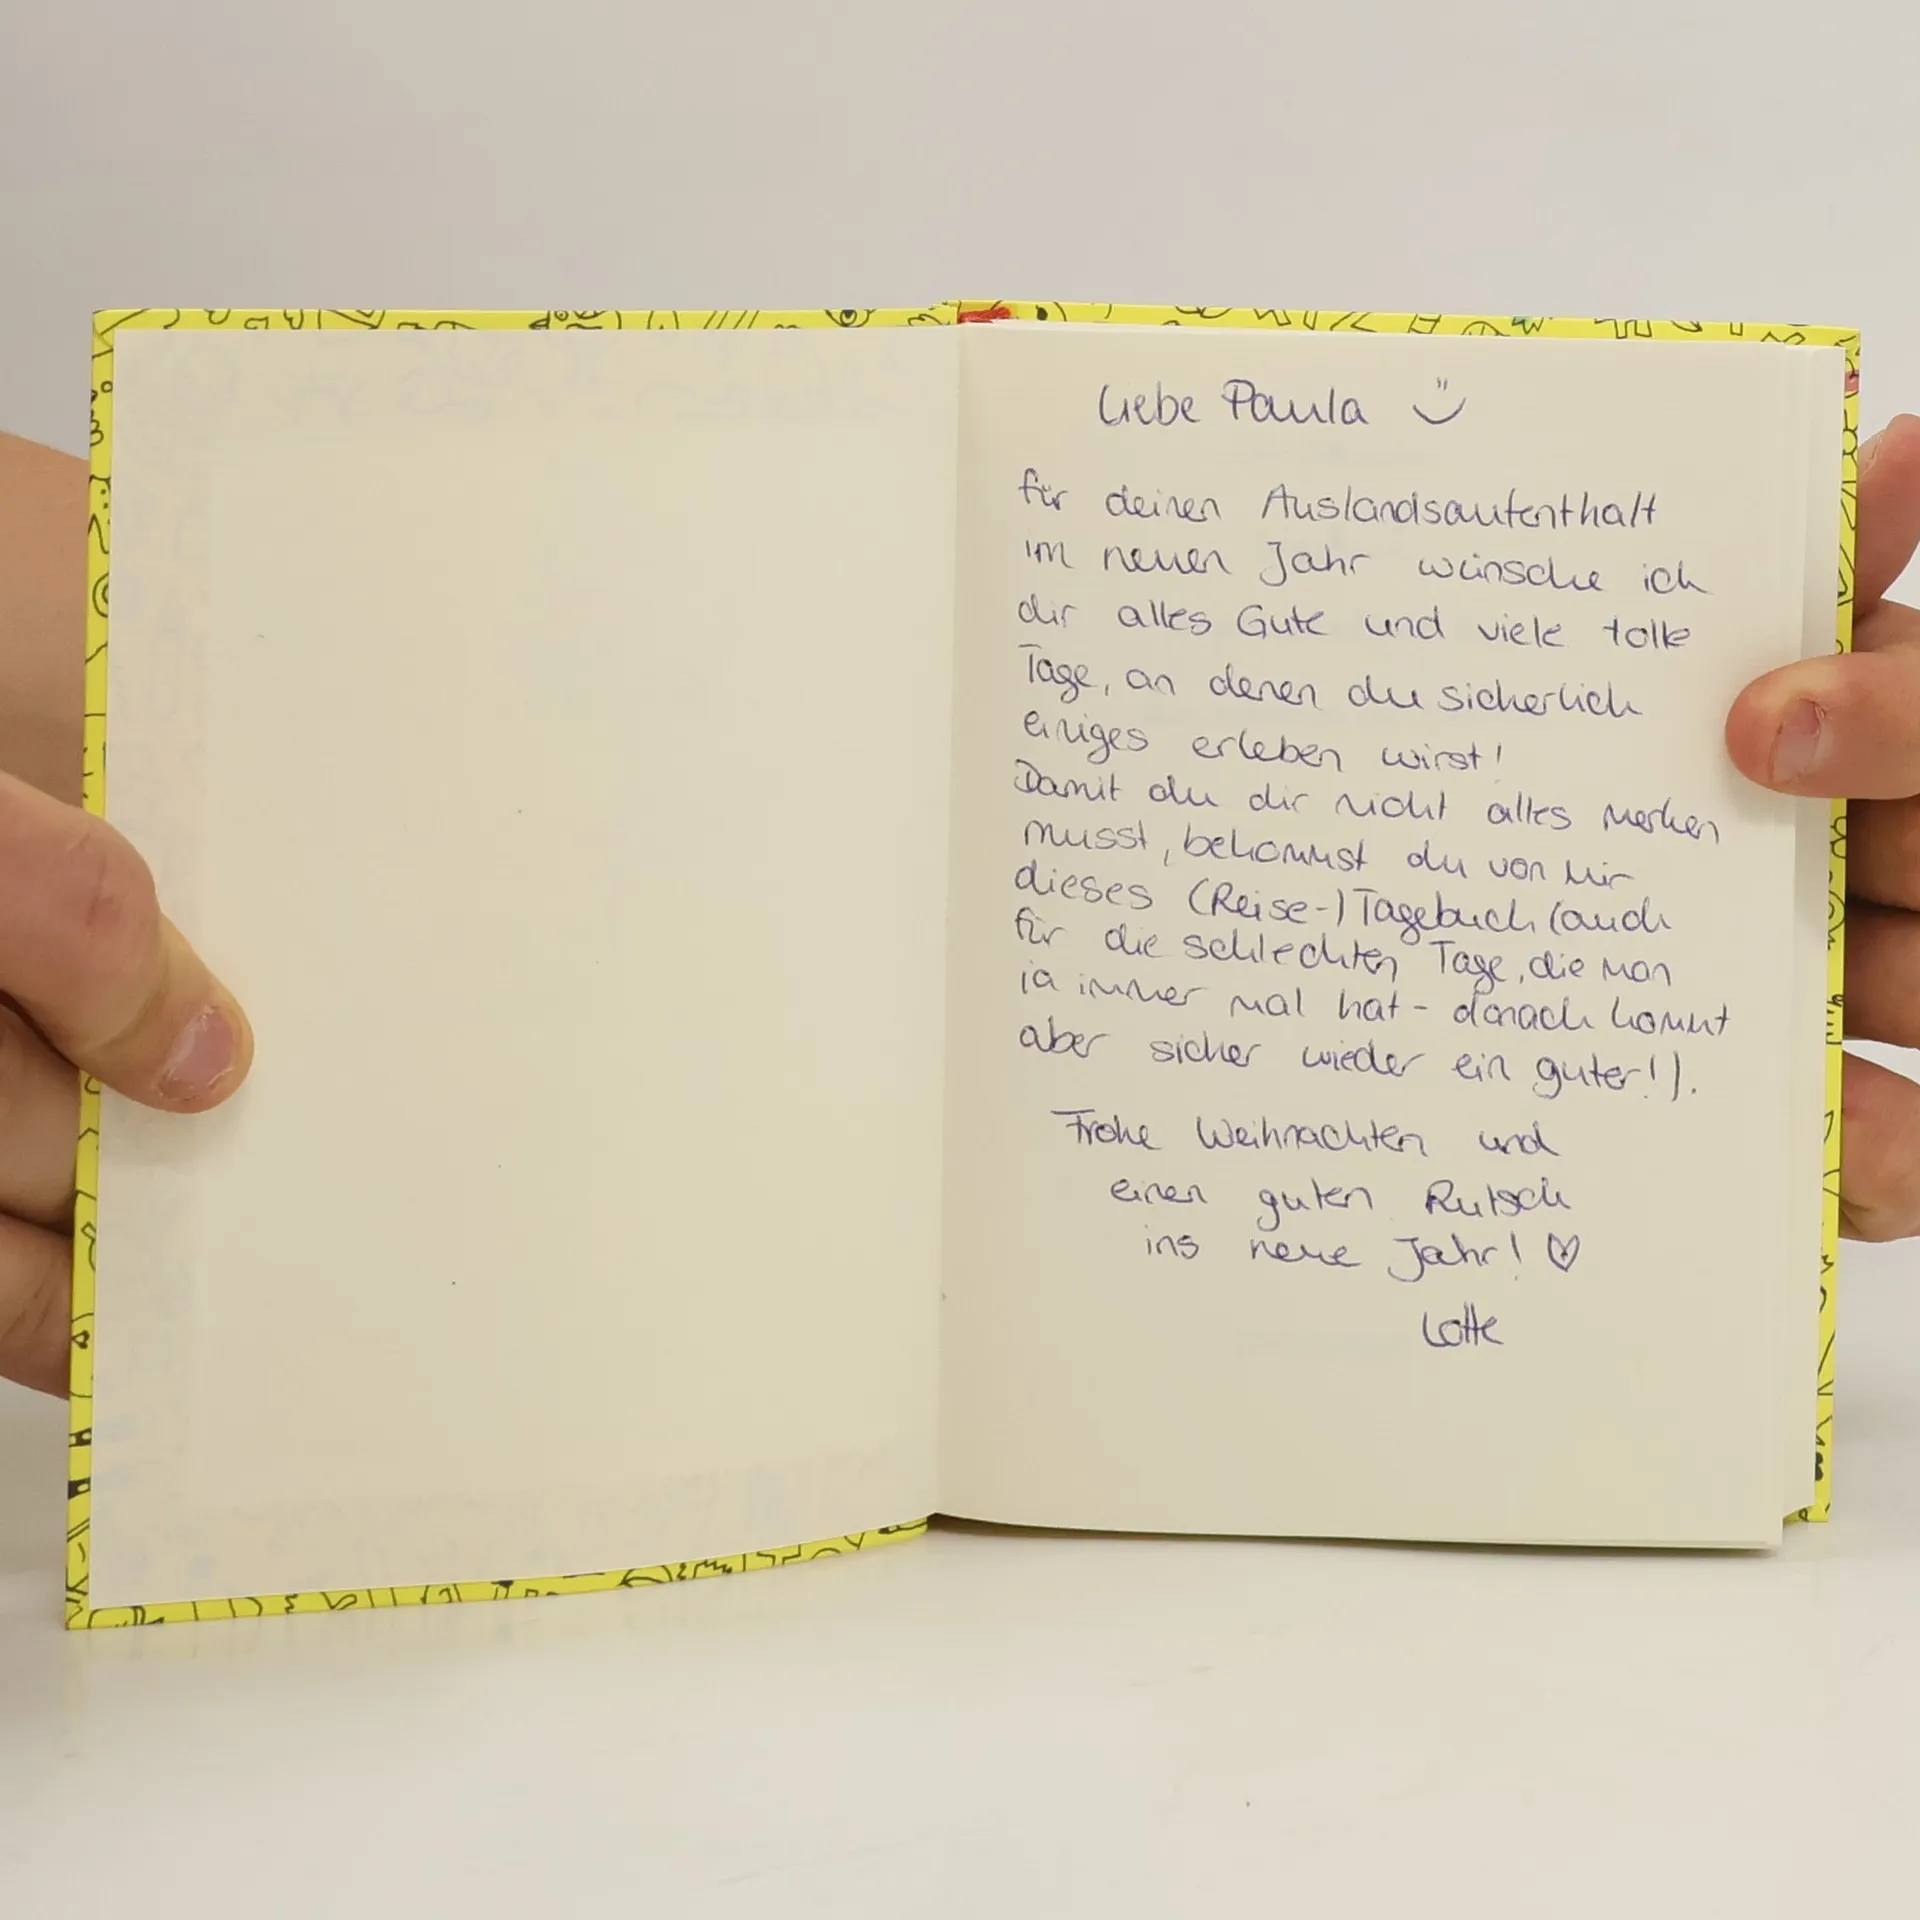 Liebe Paula
für deinen Auslandsaufenthalt
im neuen Jahr wünsche ich
dir alles Gute und viele tolle
Tage, an denen du sicherlich
einiges erleben wirst!
Damit du dir nicht alles merken
musst, bekommst du von mir
dieses (Reise-) Tagebuch (auch
für die schlechten Tage, die man
ja immer mal hat - danach kommt
aber sicher wieder ein guter!).
Frohe Weihnachten und
einen guten Rutsch
ins neue Jahr! ♡
Lotte